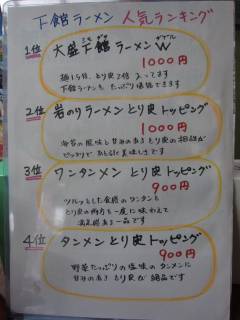 下館ラーメン 人気ランキング
1位 大盛下館ラーメンW
1000円
麺1.5倍、とり皮2倍 入ってます
下館ラーメンを たっぷり 堪能できます
2位 岩のりラーメン とり皮 トッピング
1000円
海苔の風味と 甘みのある とり皮の 相性が
ピッタリで あと引く 美味しさです
3位 ワンタンメン とり皮 トッピング
900円
ツルッとした食感の ワンタンと
とり皮の両方を 一度に 味わえて
満足感ある 一品です
4位 タンメン とり皮 トッピング
900円
野菜たっぷりの 塩味の タンメンに
甘みのある とり皮 が 絶品です